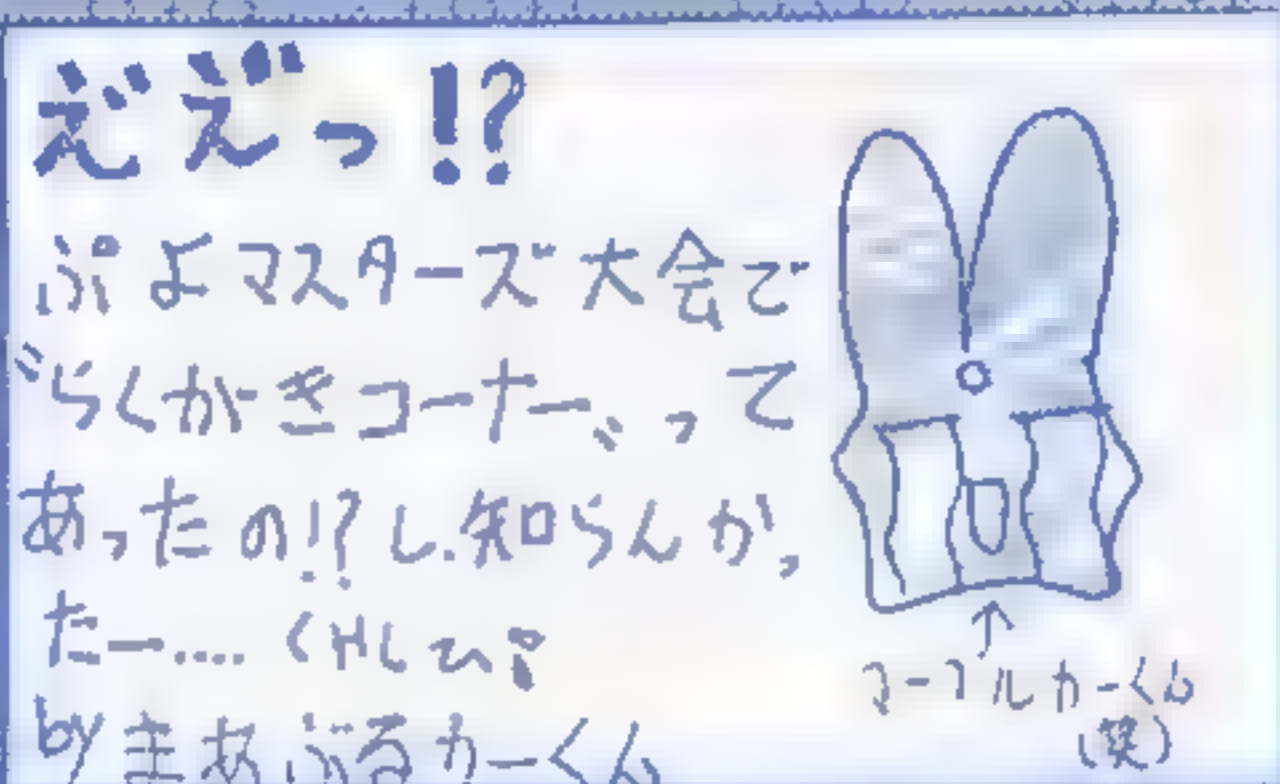 え゛え゛っ!?
ぷよマスターズ大会で
〝らくがきコーナー〟って
あったの!?し.知らんかっ
たー....くやしひ!
by まあぶるカーくん
↑
マーブルカーくん
(笑)